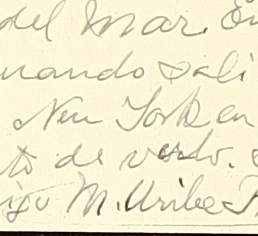 del Mar. En
uando sali
New York en
to de verlo.
igo M. Uribe